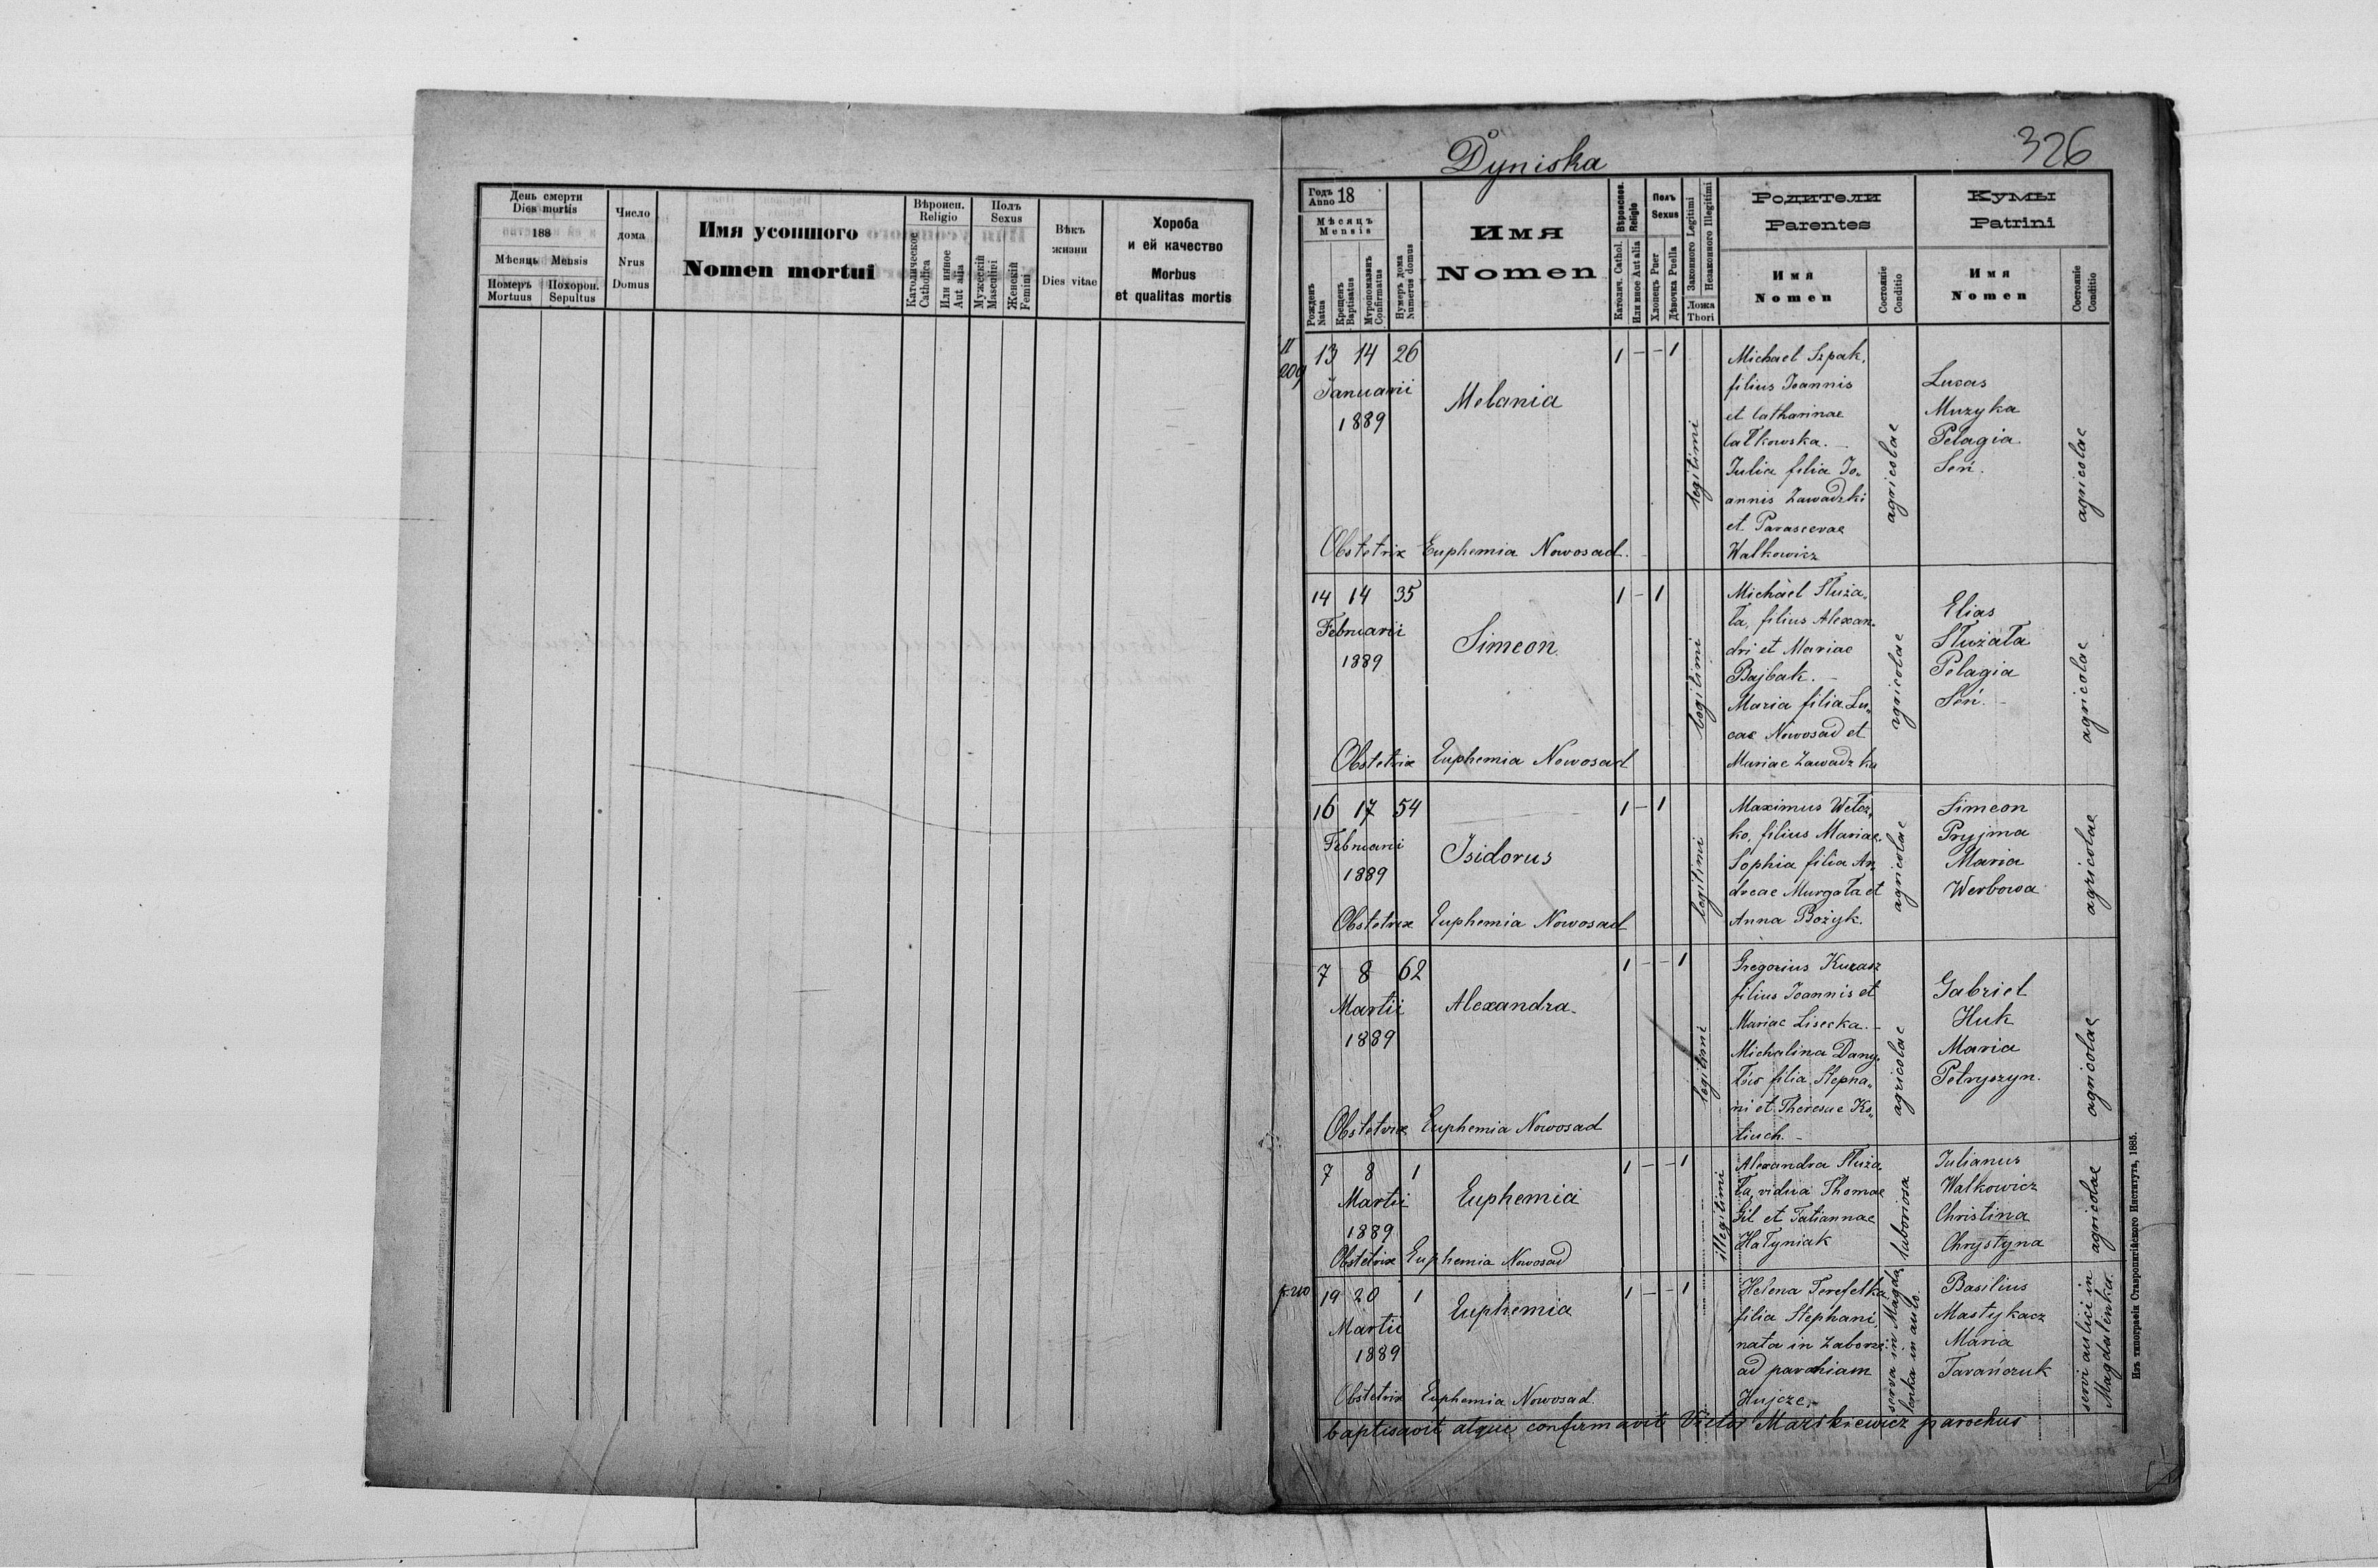 День смерти
Dies mortis
188
Мѣсяць Mensis
Померъ
Mortuus
Похорон.
Sepultus
Число
дома
Nrus
Domus
Имя усопшого
Nomen mortui
Вѣроисп.
Religio
Католическое
Catholica
Или инное
Aut alia
Полъ
Sexus
Мужескій
Masculini
Женскій
Femini
Вѣкъ
жизни
Dies vitae
Хороба
и ей качество
Morbus
et qualitas mortis
Dyniska
326
Годъ
Anno 18
Мѣсяцъ
Mensis
Рожденъ
Natus
Крещенъ
Baptisatus
Мѵропомазанъ
Confirmatus
Нумеръ дома
Numerus domus
Имя
Nomen
Вѣроисповѣд.
Religio
Католич. Cathol.
Или иное Aut alia
Полъ
Sexus
Хлопецъ Puer
Дѣвочка Puella
Законного Legitimi
Незаконного Illegitimi
Ложа
Thori
Родители
Parentes
Имя
Nomen
Состояніе
Conditio
Кумы
Patrini
Имя
Nomen
Состояніе
Conditio
II
209
13 14 26
Januarii
1889
Melania
1 - - 1
legitimi
Michael Szpak,
filius Joannis
et Catharinae
Całkowska.
Julia filia Jo„
annis Zawadzki
et Parascevae
Walkowicz
agricolae
Lucas
Muzyka
Pelagia
Seń.
agricolae
Obstetrix Euphemia Nowosad.
14 14 35
Februarii
1889
Simeon
1 - 1
legitimi
Michael Służa„
ła, filius Alexan„
dri et Mariae
Bajbak.
Maria filia Lu„
cae Nowosad et
Mariae Zawadzka
agricolae
Elias
Służała
Pelagia
Seń.
agricolae
Obstetrix Euphemia Nowosad
16 17 54
Februarii
1889
Isidorus
1 - 1
legitimi
Maximus Wełoz„
ko, filius Mariae.
Sophia filia An„
dreae Murgała et
Anna Bożyk.
agricolae
Simeon
Pryjma
Maria
Werbowa
agricolae
Obstetrix Euphemia Nowosad
7 8 62
Martii
1889
Alexandra
1 - - 1
legitimi
Gregorius Kurasz
filius Joannis et
Mariae Lisecka.
Michalina Dany„
łów filia Stepha„
ni et Theresae Ko„
tiuch.
agricolae
Gabriel
Huk
Maria
Petryszyn.
agricolae
Obstetrix Euphemia Nowosad
7 8 1
Martii
1889
Euphemia
1 - - 1
illegitimi
Alexandra Służa„
ła, vidua Thomae
Gil et Tatiannae
Hałyniak
laboriosa
Julianus
Walkowicz
Christina
Chrystyna
agricolae
Obstetrix Euphemia Nowosad
p. 210
19 20 1
Martii
1889
Euphemia
1 - - 1
Helena Terefelka
filia Stephani,
nata in Zaborze
ad parochiam
Hujcze.
serva in Magda„
lenka in aulo.
Basilius
Mastykacz
Maria
Tarańczuk
servi aulici in
Magdalenka.
Obstetrix Euphemia Nowosad.
baptisavit atque confirmavit Victor Mazikiewicz parochus
Изъ типографіи Ставропигійского Института, 1885.